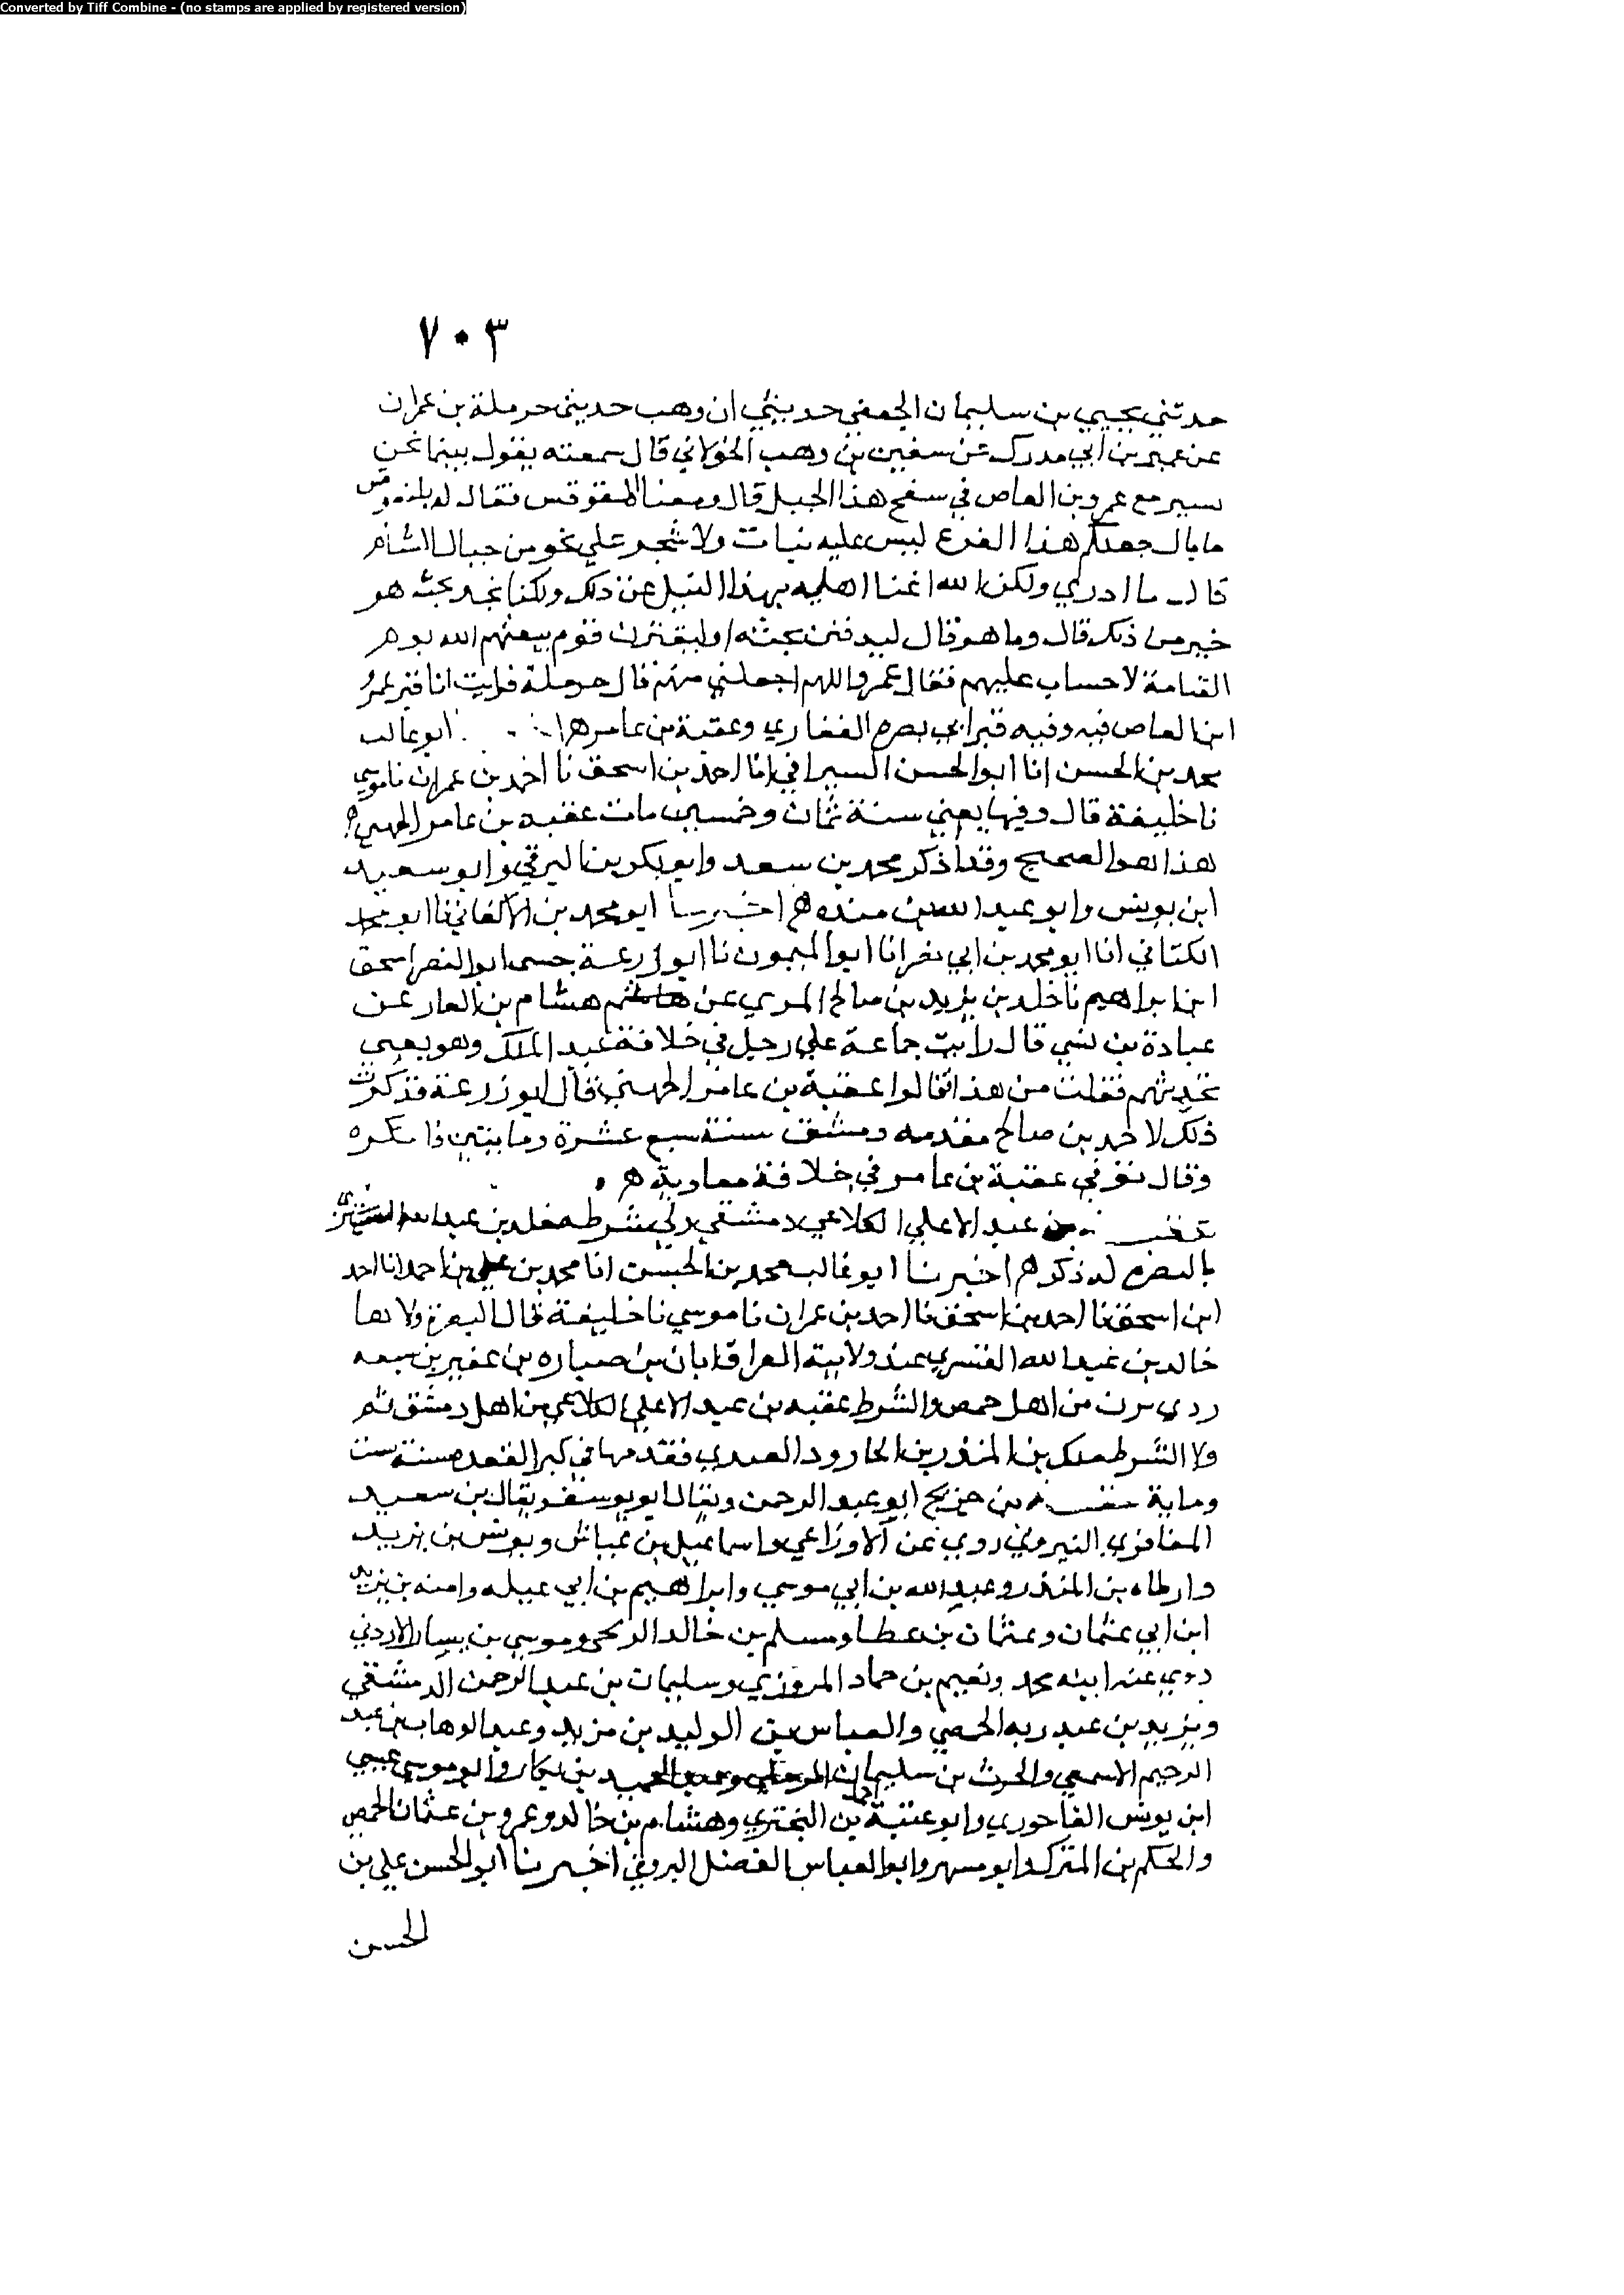 Converted by Tiff Combine - (no stamps are applied by registered version)
٧٠٣
حدثني يحيي بن سليمان الجعفي حدثني ابن وهب حدثني حرملة بن عمران
عن عمير بن ابي مدرك عن سفين بن وهب الخولاني قال سمعته يقول بينما نحن
نسير مع عمرو بن العاص في سفح هذا الجبل قال ومعنا المقوقس فقال له
ما بال جبلكم هذا اقرع ليس عليه نبات ولا شجر علي نحو من جبال الشام
قال ما ادري ولكن الله اغنا اهله بهذا النيل عن ذلك ولكنا نجد تحته هو
خير من ذلك قال وما هو قال ليدفنن تحته او ليقبرن قوم يبعثهم الله يوم
القيامة لا حساب عليهم فقال عمرو اللهم اجعلني منهم قال حرملة فرايت انا قبر عمرو
ابن العاص فيه وفيه قبر ابي بصره الغفاري وعقبة بن عامر ه ابو غالب
محمد بن الحسن انا ابو الحسن السيرافي انا احمد بن اسحق نا احمد بن عمران نا موسي
نا خليفة قال وفيها يعني سنة ثمان وخمسين مات عقبه بن عامر الجهني ه
هذا هو الصحيح وقد ذكر محمد بن سعد وابو بكر بن البرقي وابو سعيد
ابن يونس وابو عبد الله بن منده ه اخبرنا ابو محمد بن الاكفاني نا ابو محمد
الكتاني انا ابو محمد بن ابي نصر انا ابو الميمون نا ابو زرعة ابو النضر اسحق
ابن ابراهيم نا خلد بن يزيد بن صالح المري عن هشام بن الغار عن
عبادة بن نسي قال رايت جماعة علي رجل في خلافة عبد الملك وهو
يحدثهم فقلت من هذا قالوا عقبة بن عامر الجهني قال ابو زرعة فذكرت
ذلك لاحمد بن صالح مقدمه دمشق سنة سبع عشرة ومايتين فانكره
وقال توفي عقبة بن عامر في خلافة معاوية ه
عقبه بن عبد الاعلي الكلاعي دمشقي ولي شرطه خلد بن عبد الله القسري
بالبصره له ذكر ه اخبرنا ابو غالب محمد بن الحسن انا محمد بن علي بن احمد انا احمد
ابن اسحق نا احمد بن اسحق نا احمد بن عمران نا موسي نا خليفة قال البصرة ولاها
خالد بن عبد الله القسري عند ولايته العراق ابان بن صباره بن عفير بن
من اهل حمص والشرط عقبه بن عبد الاعلي الكلاعي من اهل دمشق ثم
ولا الشرط ملك بن المنذر بن الجارود العبدي فقدمها في ذي القعده سنة ست
وماية عقبه بن ابو عبد الرحمن ويقال ابو يوسف ويقال بن سعيد
المعافري البيروتي روي عن الاوزاعي واسماعيل بن عياش ويونس بن يزيد
وارطاه بن المنذر وعبد الله بن ابي موسي وابراهيم بن ابي عبله وامنه بن يزيد
ابن ابي عثمان وعثمان بن عطا ومسلم بن خالد الزنجي وموسي بن يسار الاردني
روي عنه ابنه محمد ونعيم بن حماد المروزي وسليمان بن عبد الرحمن الدمشقي
ويزيد بن عبد ربه الحمصي والعباس بن الوليد بن مزيد وعبد الوهاب بن عبد
الرحيم الاشجعي والحرث بن سليمان الرملي وعبد الحميد بن بكار وابو موسي عيسي
ابن يونس الفاخوري وابو عتبة بن البختري وهشام بن خالد وعمرو بن عثمان الحمصي
والحكم بن المبرك وابو مسهر وابو العباس الفضل البيروتي اخبرنا ابو الحسن علي بن
الحسن